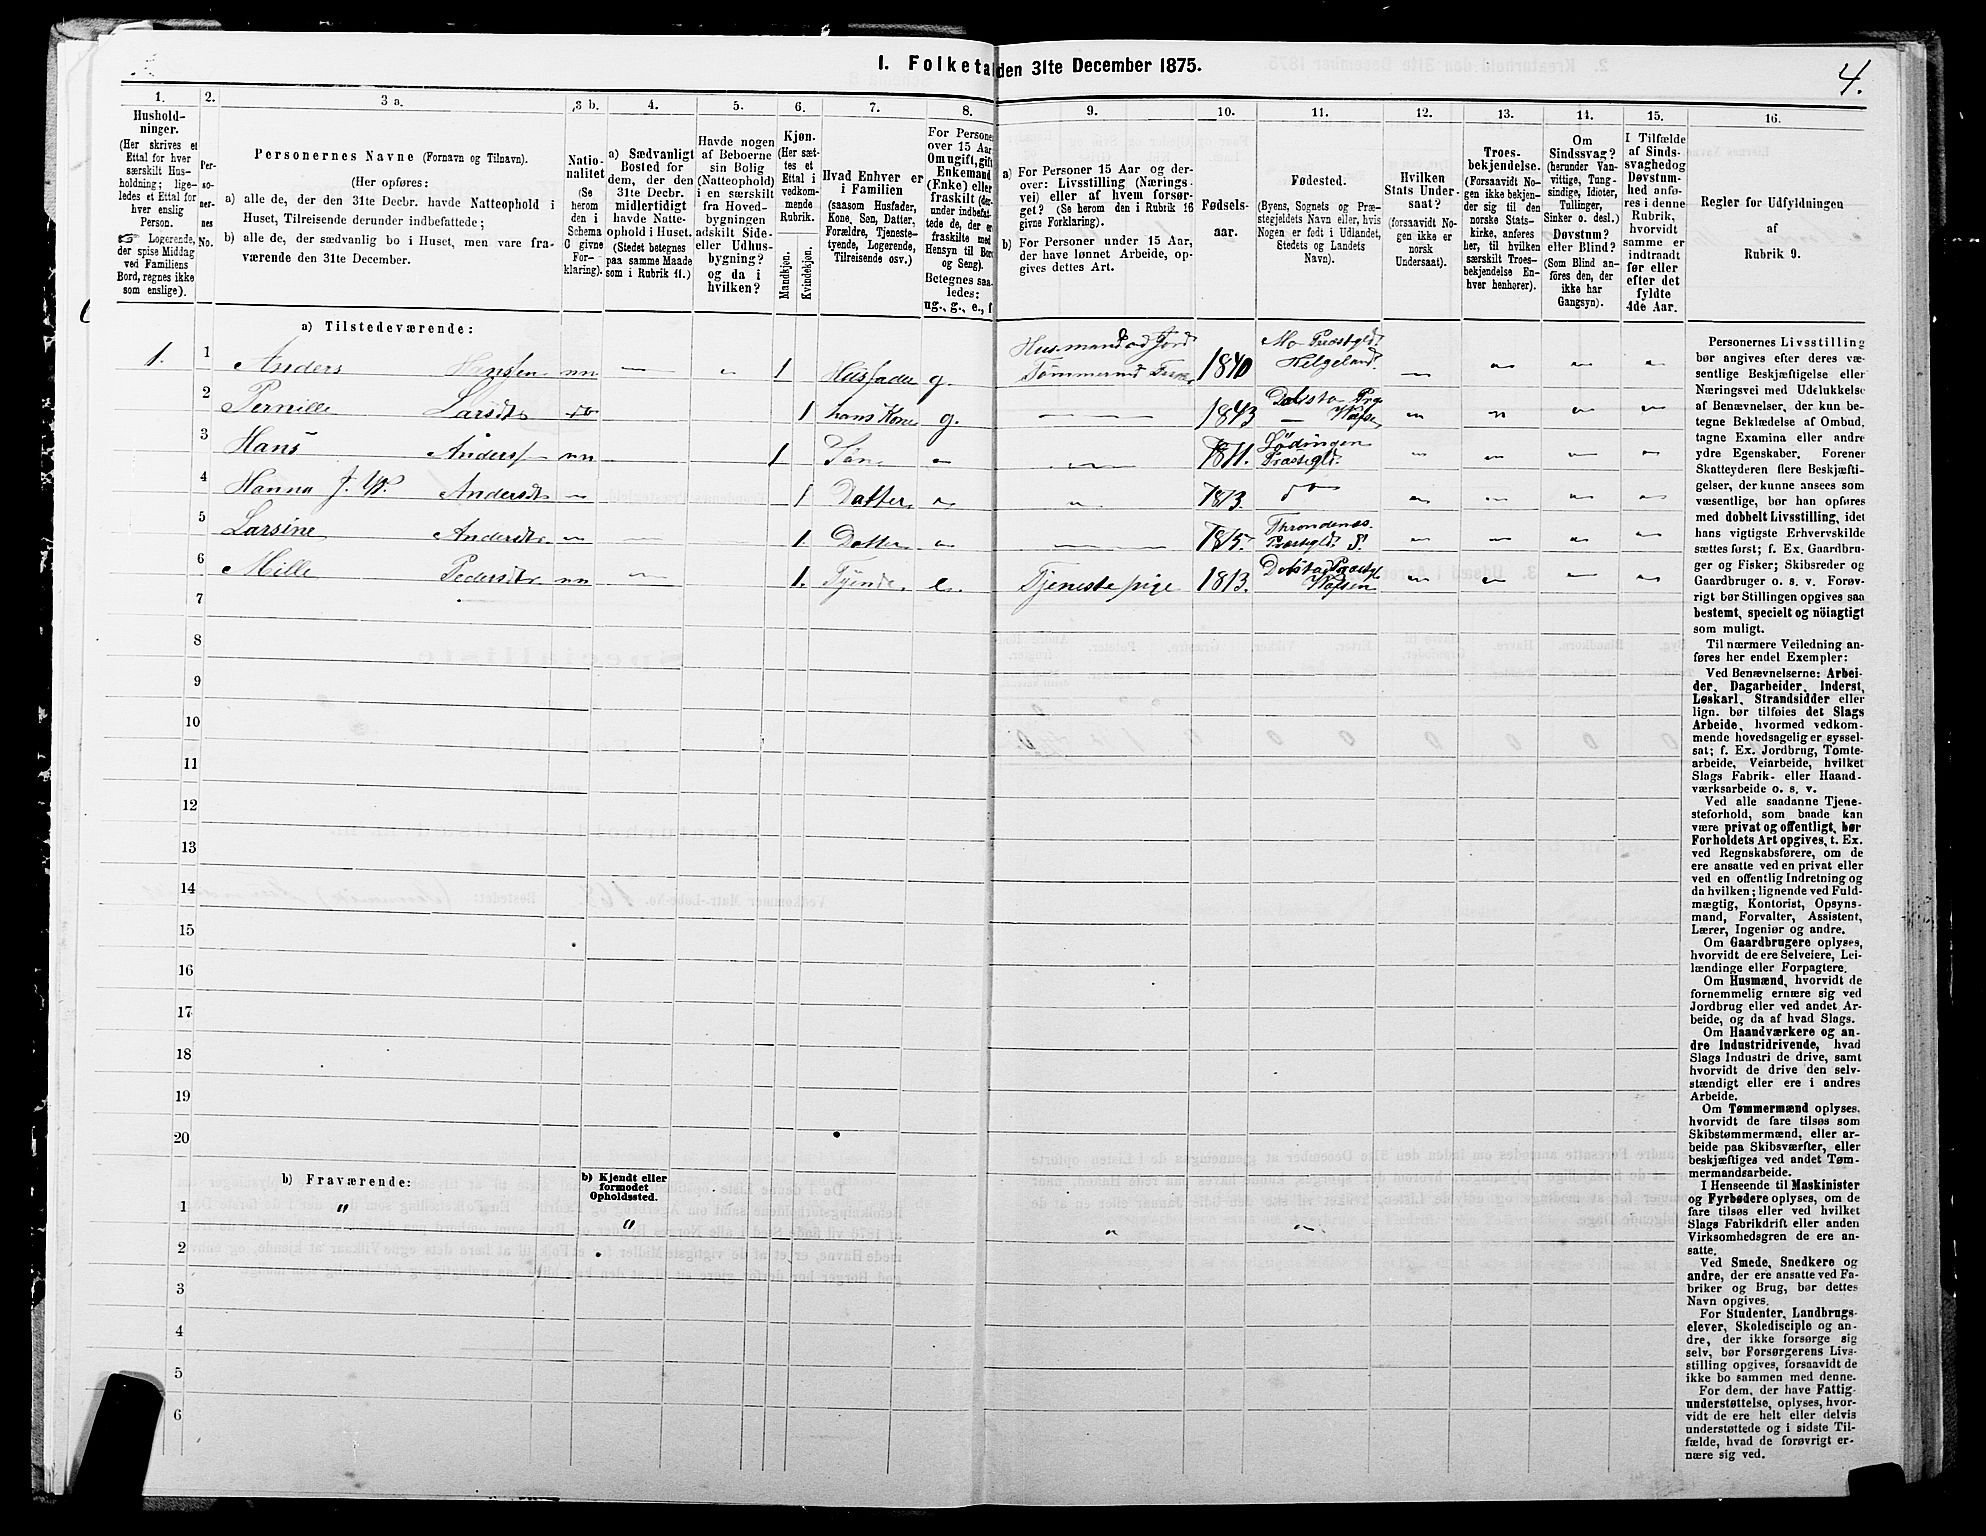 4.
I. Folketal den 31te December 1875.
1.
Hushold-
ninger.
(Her skrives et
Ettal for hver
særskilt Hus-
holdning; lige-
ledes et Ettal for
hver enslig
Person.
Logerende,
der spise Middag
ved Familiens
Bord, regnes ikke
som enslige).
2.
Per-
so-
ner-
nes
No.
3 a.
Personernes Navne (Fornavn og Tilnavn).
(Her opføres:
a) alle de, der den 31te Decbr. havde Natteophold i
Huset, Tilreisende derunder indbefattede;
b) alle de, der sædvanlig bo i Huset, men vare fra-
værende den 31te December.
3 b.
Natio-
nalitet
(Se
herom
den i
Schema
C givne
For-
klaring).
4.
a) Sædvanligt
Bosted for
dem, der den
31te Decbr.
midlertidigt
havde Natte-
ophold i Huset.
(Stedet betegnes
paa samme Maade
som i Rubrik 11.)
5.
Havde nogen
af Beboerne
sin Bolig
(Natteophold)
i en særskilt
fra Hoved-
bygningen
adskilt Side-
eller Udhus-
bygning?
og da i
hvilken?
6.
Kjøn.
(Her sæt-
tes et
Ettal i
vedkom-
mende
Rubrik.
Mandkjøn.
Kvindekjøn.
7.
Hvad Enhver er
i Familien
(saasom Husfader,
Kone, Søn, Datter,
Forældre, Tjeneste-
tyende, Logerende,
Tilreisende osv.)
8.
For Personer
over 15 Aar:
Om ugift, gift,
Enkemand
(Enke) eller
fraskilt
Betegnes saa-
ledes:
ug., g., e., f.
9.
a) For Personer 15 Aar og der-
over: Livsstilling (Nærings-
vei) eller af hvem forsør-
get? (Se herom den i Rubrik 16
givne Forklaring).
b) For Personer under 15 Aar,
der have lønnet Arbeide, op-
gives dettes Art.
10.
Fødsels-
aar.
11.
Fødested.
(Byens, Sognets og Præ-
stegjeldets Navn eller, hvis
Nogen er født i Udlandet,
Stedets og Landets
Navn).
12.
Hvilken
Stats Under-
saat?
(forsaavidt No-
gen ikke er
norsk
Undersaat).
13.
Troes-
bekjendelse.
(Forsaavidt No-
gen ikke bekjen-
der sig til den
norske Stats-
kirke, anføres
her, til hvilken
særskilt Troes-
bekjendelse En-
hver henhører).
14.
Om
Sindssvag?
(herunder Van-
vittige, Tung-
sindige, Idioter,
Tullinger,
Sinker o. desl.)
Døvstum?
eller Blind?
(Som Blind an-
føres den, der
ikke har
Gangsyn).
15.
I Tilfælde
af Sinds-
svaghed og
Døvstum-
hed anfø-
res i denne
Rubrik,
hvorvidt
samme er
indtraadt
før eller
efter det
fyldte
4de Aar.
16.
Regler for Udfyldningen
af
Rubrik 9.
a) Tilstedeværende:
1. 1 Anders Hansen nn 1 Husfader g. Husmand med Jord Tømmermand 1840 Mo Præstgld. Helgeland.
2 Pernille Larsdtr do 1 hans Kone g. 1843
3 Hans Anders nn 1 Søn 1871. Lødingen Præstgld.
4 Hanna J. Andersdtr 1 Datter 1873. do
5 Larsine Andersdtr 1. Datter 1875. Throndenæs Præstgld.
6 Mille Pedersdtr nn 1. Tyende e. Tjenestepige 1813.
7
8
9
10
11
12
13
14
15
16
17
18
19
20
b) Fraværende:
b) Kjendt eller
formodet
Opholdssted.
1 " "
2
3
4
5
6
Personernes Livsstilling
bør angives efter deres væ-
sentlige Beskjæftigelse eller
Næringsvei med Udelukkelse
af Benævnelser, der kun be-
tegne Beklædelse af Ombud,
tagne Examina eller andre
ydre Egenskaber. Forener
Skatteyderen flere Beskjæfti-
gelser, der kunne ansees som
væsentlige, bør han opføres
med dobbelt Livsstilling, idet
hans vigtigste Erhvervskilde
sættes først; f. Ex. Gaardbru-
ger og Fisker; Skibsreder og
Gaardbruger o. s. v. Forøv-
rigt bør Stillingen opgives saa
bestemt, specielt og nöiagtigt
som muligt.
Til nærmere Veiledning an-
føres her endel Exempler:
Ved Benævnelserne: Arbei-
der, Dagarbeider, Inderst,
Løskarl, Strandsidder eller
lign. bør tilføies det Slags
Arbeide, hvormed vedkom-
mende hovedsagelig er syssel-
sat; f. Ex. Jordbrug, Tømte-
arbeide, Veiarbeide, hvilket
Slags Fabrik- eller Haand-
værksarbeide o. s. v.
Ved alle saadanne Tjene-
steforhold, som baade kan
være privat og offentligt, bør
Forholdets Art opgives, t. Ex.
ved Regnskabsførere, om de
ere ansatte ved en privat eller
ved en offentlig Indretning og
da hvilken; lignende ved Fuld-
mægtig, Kontorist, Opsyns-
mand, Forvalter, Assistent,
Lærer, Ingeniør og andre.
Om Gaardbrugere oplyses,
hvorvidt de ere Selveiere, Lei-
lændinge eller Forpagtere.
Om Husmænd, hvorvidt de
fornemmelig ernære sig ved
Jordbrug eller ved andet Ar-
beide, og da af hvad Slags.
Om Haandværkere og an-
dre Industridrivende, hvad
Slags Industri de drive, samt
hvorvidt de drive den selv-
stændigt eller ere i andres
Arbeide.
Om Tømmermænd oplyses,
hvorvidt de fare tilsøs som
Skibstømmermænd, eller ar-
beide paa Skibsværfter, eller
beskjæftiges ved andet Tøm-
mermandsarbeide.
I Henseende til Maskinister
og Fyrbødere oplyses, om de
fare tilsøs eller ved hvilket
Slags Fabrikdrift eller anden
Virksomhedsgren de ere an-
satte.
Ved Smede, Snedkere og
andre, der ere ansatte ved Fa-
briker og Brug, bør dettes
Navn opgives.
For Studenter, Landbrugs-
elever, Skoledisciple og an-
dre, der ikke forsørge sig
selv, bør Forsørgerens Livs-
stilling opgives, forsaavidt de
ikke bo sammen med denne.
For dem, der have Fattig-
understøttelse, oplyses, hvor-
vidt de ere helt eller delvis
understøttede og i sidste Til-
fælde, hvad de forøvrigt er-
nære sig ved.